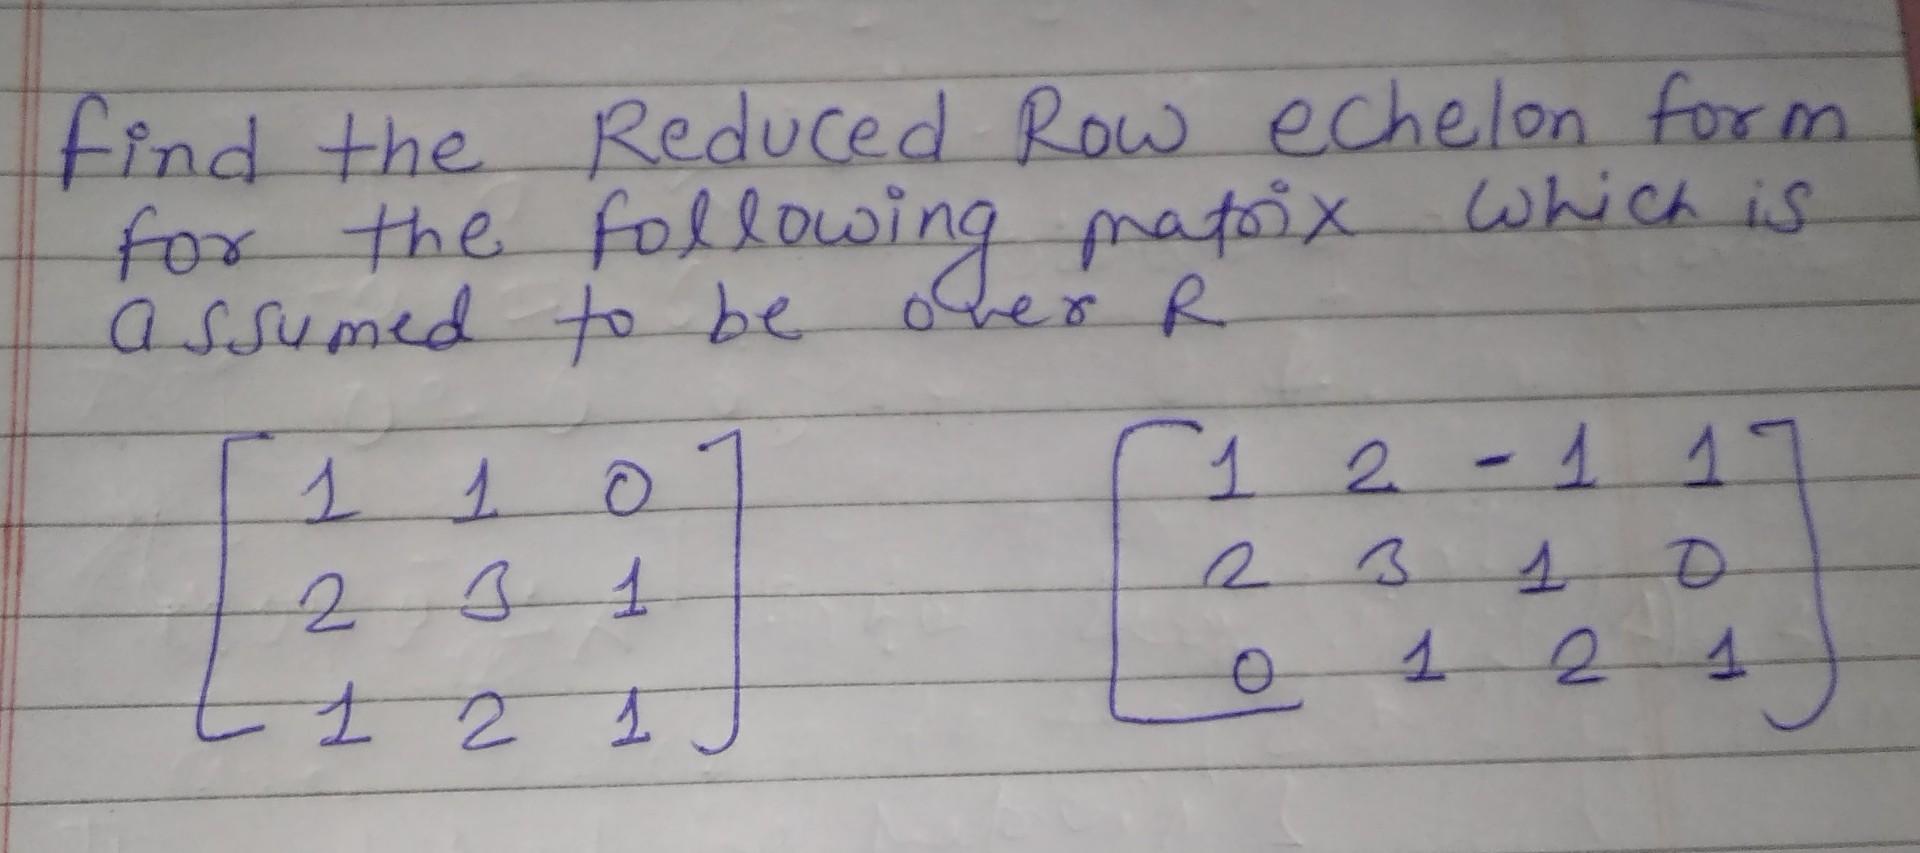 find the Reduced Row echelon form
for the following matrix which is
assumed to be over R
1 1 0
2 3 1
1 2 1
1 2 -1 1
2 3 1 0
0 1 2 1